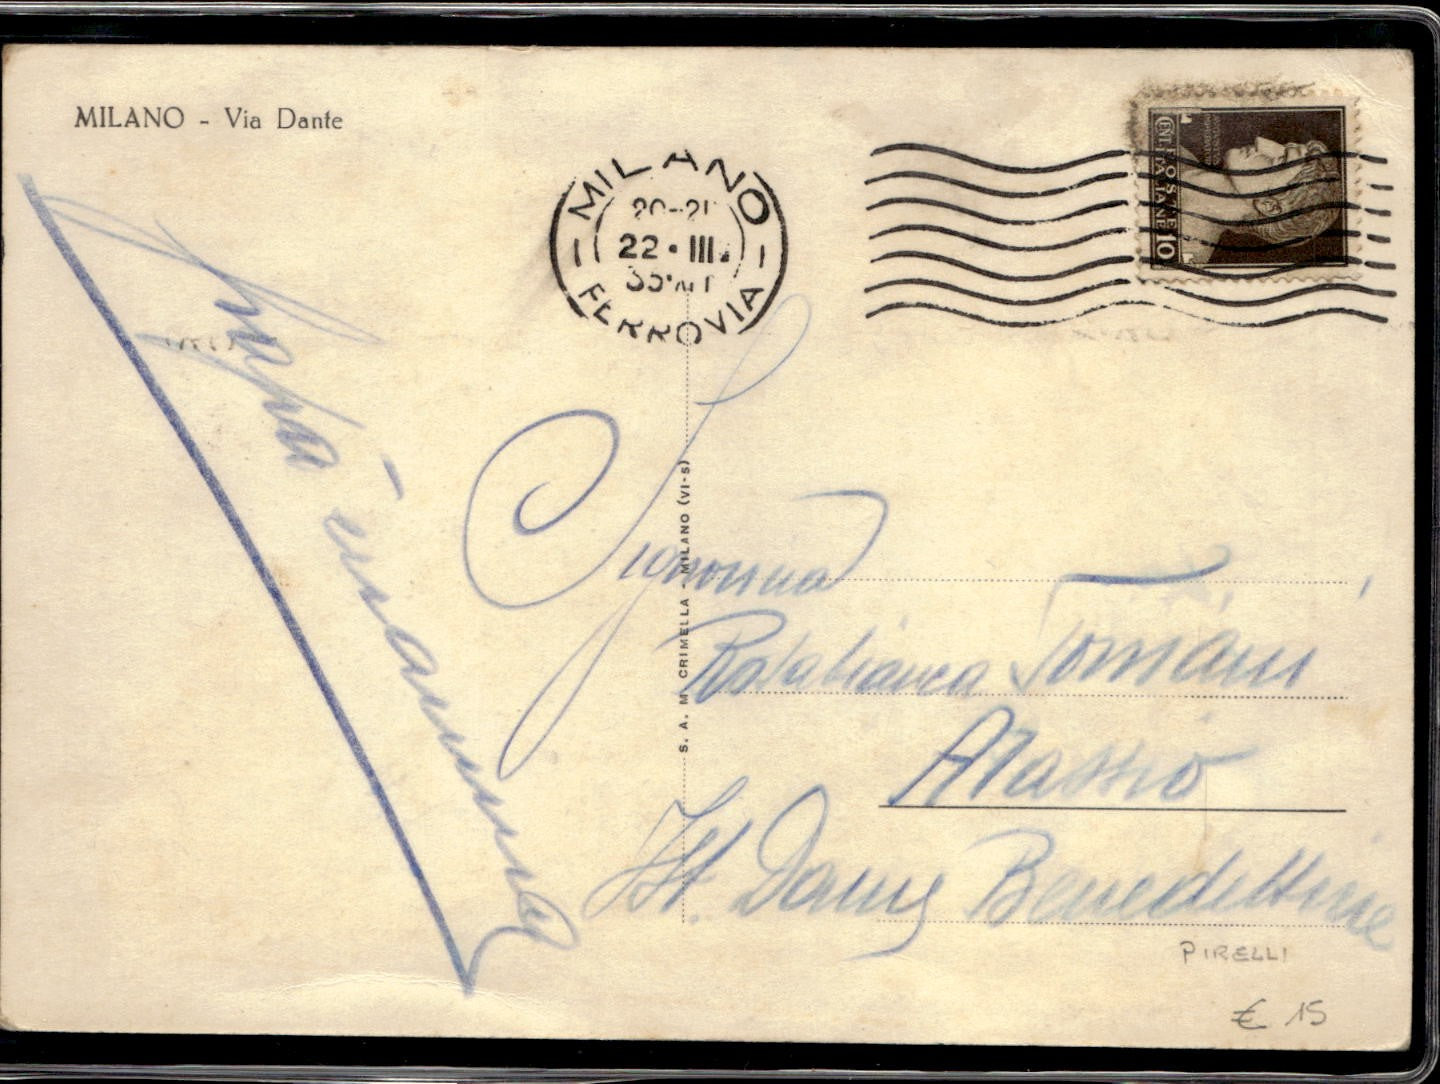 MILANO - Via Dante
MILANO
20-21
22 · III
FERROVIA
POSTE
ITALIANE
10
papà e mamma
S. A. M. CRIMELLA - MILANO (VI-S)
Signorina
Rosabianca Tomani
Alassio
Ist. Dame Benedettine
PIRELLI
€ 15